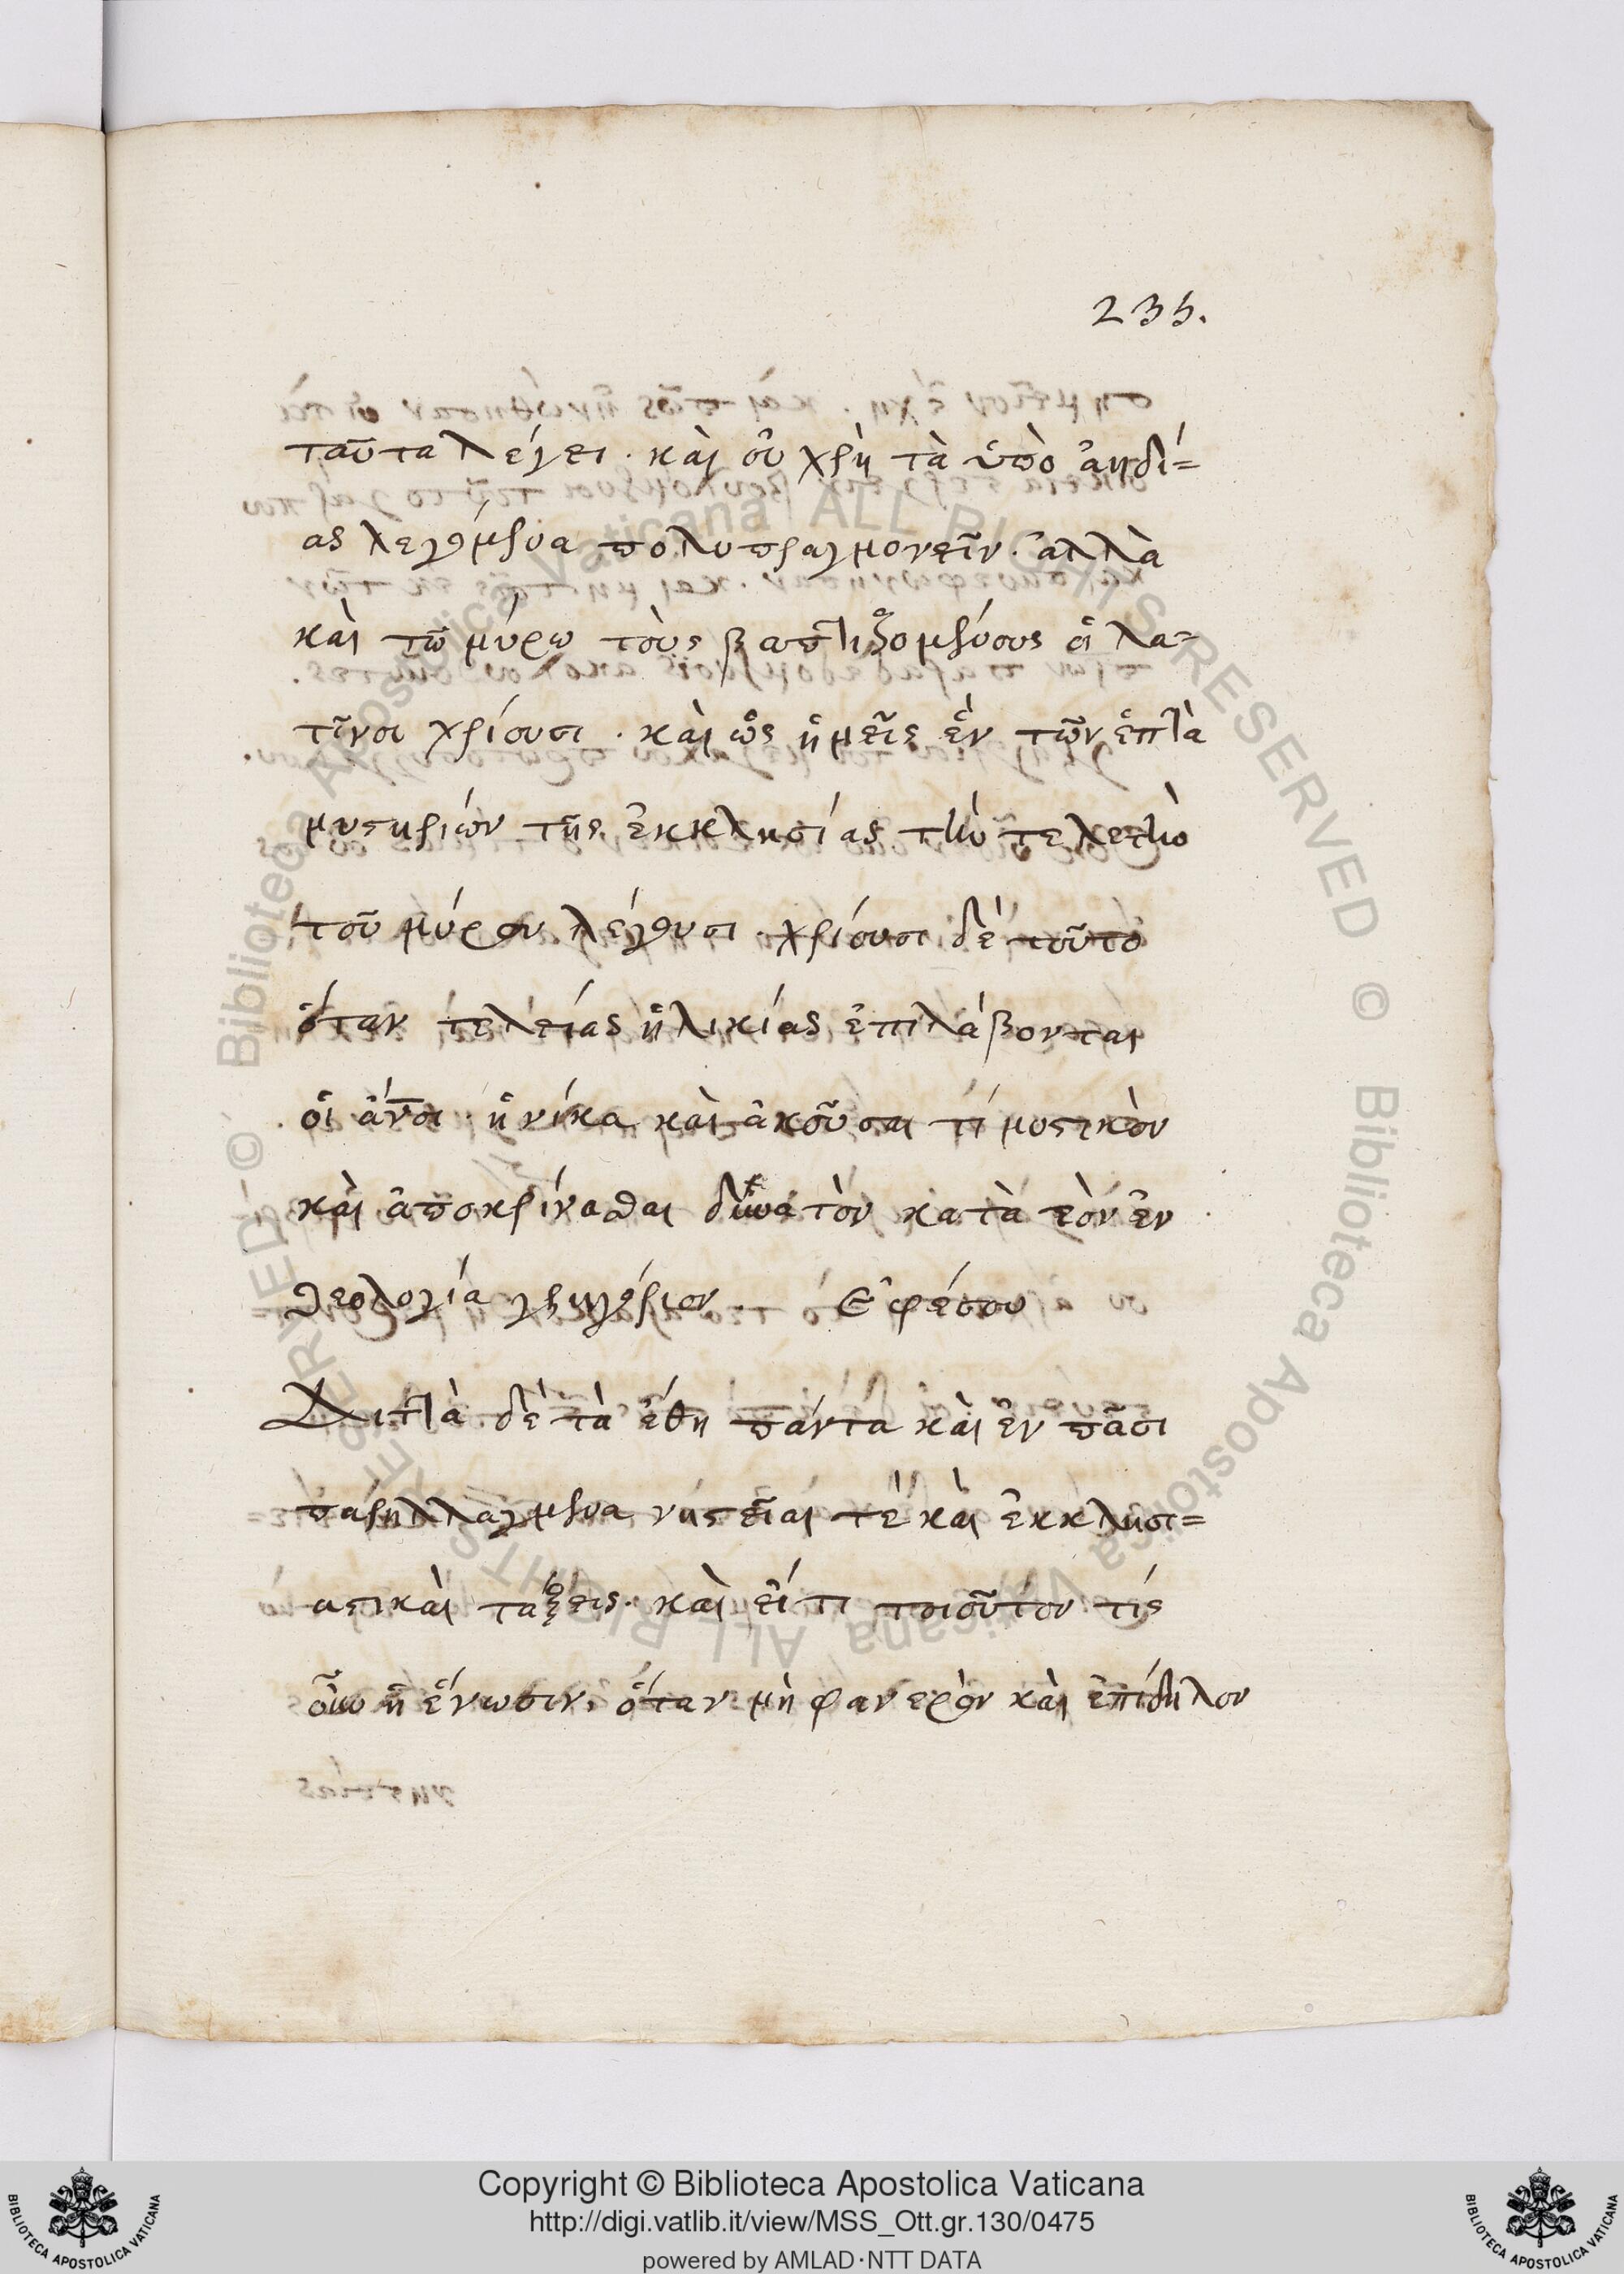 235.
ταῦτα λέγει· καὶ οὐ χρὴ τὰ ὑπὸ ἀηδί=
ας λεγόμενα πολυπραγμονεῖν. ἀλλὰ
καὶ τῶ μύρω τοὺς βαπτιζομένους οἱ λα=
τῖνοι χρίουσι · καὶ ὡς ἡμεῖς ἓν τῶν ἑπτὰ
μυστηρίων τῆς ἐκκλησίας τὴν τελετὴν
τοῦ μύρου λέγουσι· χρίουσι δὲ τοῦτο
ὅταν τελείας ἡλικίας ἐπιλάβονται
οἱ ἄνοι· ἡνίκα καὶ ἀκοῦσαι τί μυστικὸν
καὶ ἀποκρίνασθαι δυνατὸν κατὰ τὸν ἐν
θεολογία γρηγόριον. Ἐφέσου
Διττὰ δὲ τὰ ἔθη πάντα καὶ ἐν πᾶσι
παρηλλαγμένα νηστεῖαι τὲ καὶ ἐκκλησι=
αστικαὶ τάξεις· καὶ εἴτι τοιοῦτον τίς
οὖν ἡ ἕνωσιν, ὅταν μὴ φανερὸν καὶ ἐπίδηλον
Copyright © Biblioteca Apostolica Vaticana
http://digi.vatlib.it/view/MSS_Ott.gr.130/0475
powered by AMLAD·NTT DATA
BIBLIOTECA APOSTOLICA VATICANA
BIBLIOTECA APOSTOLICA VATICANA